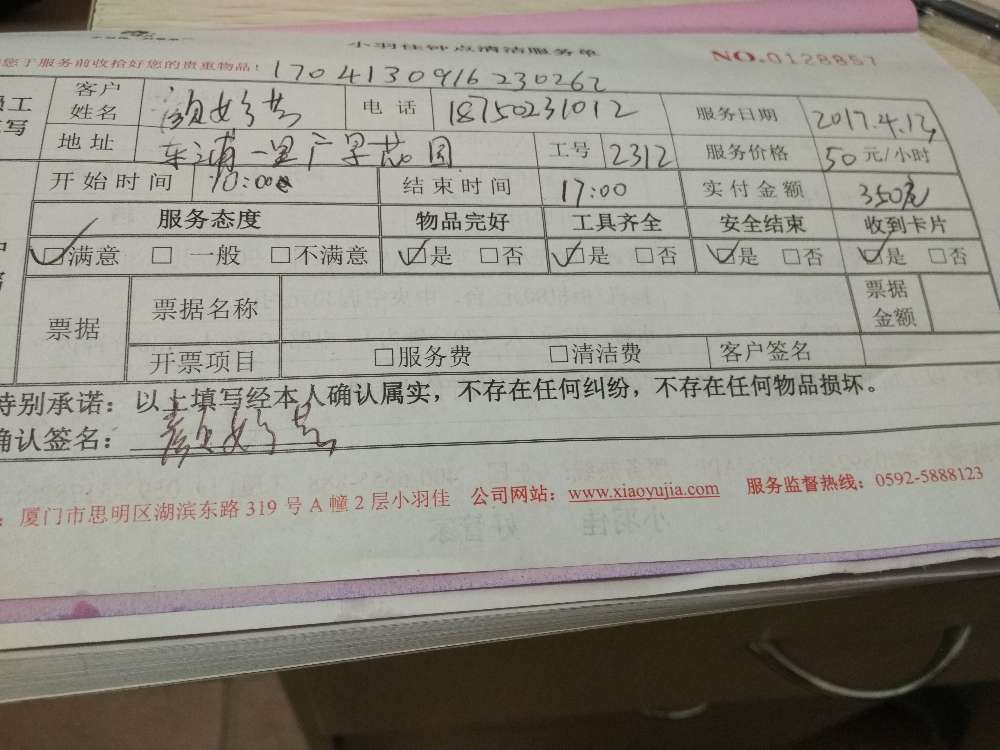 小羽佳钟点清洁服务单
您于服务前收拾好您的贵重物品！ 1704130916230262 NO.0128857
员工 客户姓名 颜妙芸 电话 18750231012 服务日期 2017.4.13
填写 地址 东浦一里 工号 2312 服务价格 50元/小时
开始时间 10:00 结束时间 17:00 实付金额 350元
服务态度 物品完好 工具齐全 安全结束 收到卡片
☑满意 □ 一般 □不满意 ☑是 □否 ☑是 □否 ☑是 □否 ☑是 □否
票据 票据名称 票据金额
开票项目 □服务费 □清洁费 客户签名
特别承诺：以上填写经本人确认属实，不存在任何纠纷，不存在任何物品损坏。
确认签名：颜妙芸
：厦门市思明区湖滨东路 319 号 A 幢 2 层小羽佳 公司网站：www.xiaoyujia.com 服务监督热线：0592-5888123